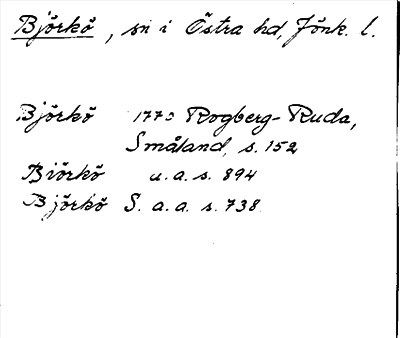 Björkö, sn i Östra hd, Jönk. l.
Björkö 1770 Rogberg-Ruda,
Småland, s. 152
Biörkö u.a. s. 894
Björkö S. a.a. s. 738